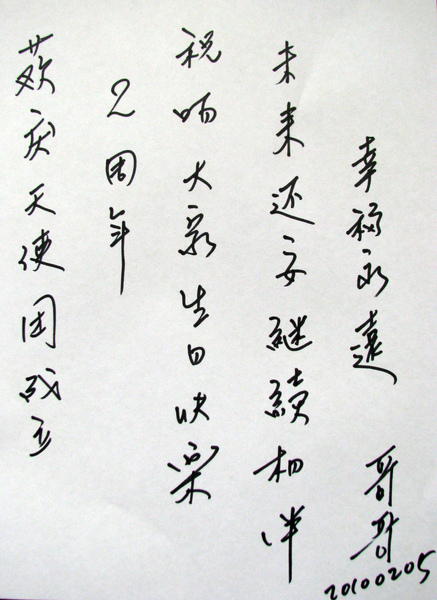 欢庆天使团成立
2周年
祝大家生日快樂
未来还要継續相伴
幸福永遠
哥哥
20100205